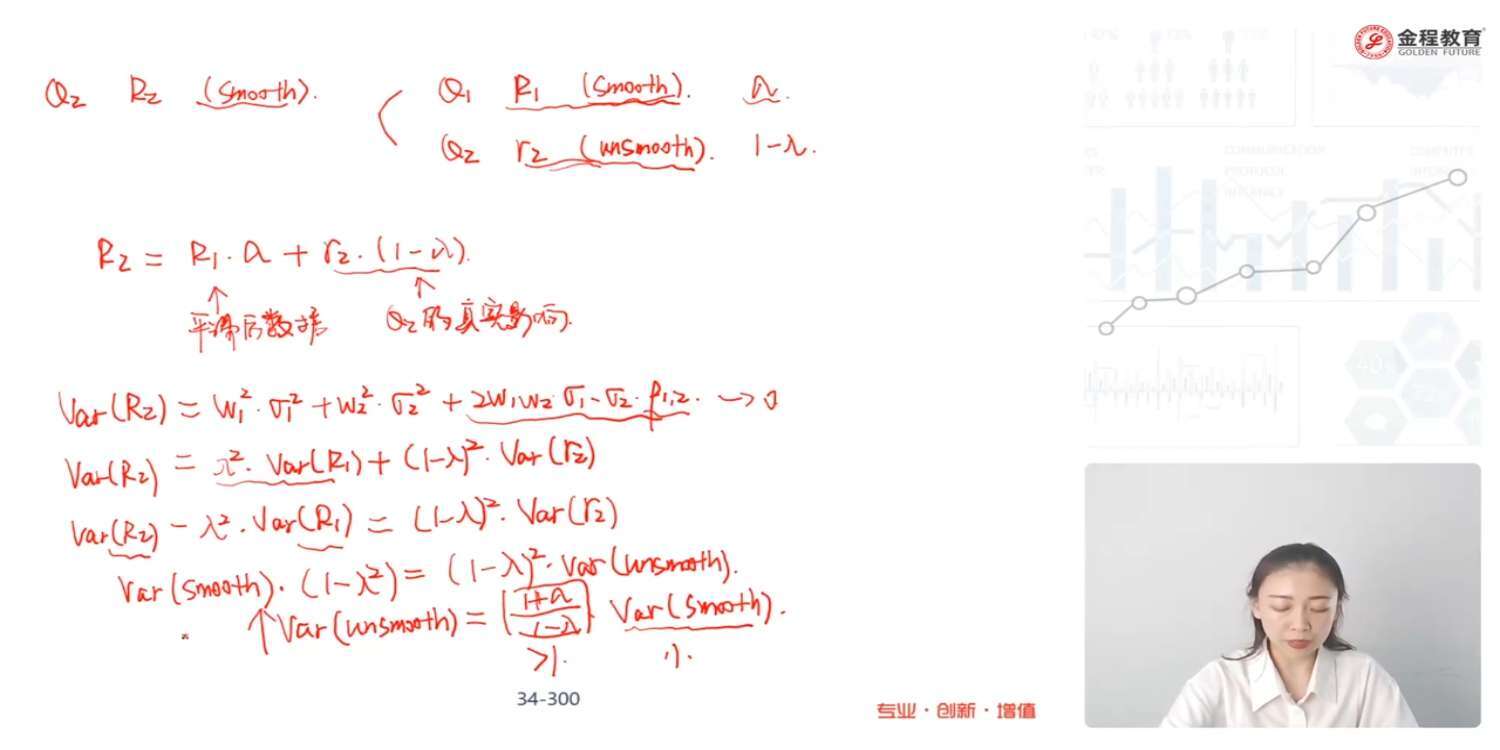 金程教育
GOLDEN FUTURE
Q₂ R₂ (smooth).
Q₁ R₁ (smooth). λ.
Q₂ r₂ (unsmooth). 1-λ.
R₂ = R₁·λ + r₂·(1-λ).
↑ ↑
平滑后数据 Q₂的真实影响.
Var(R₂) = w₁²·σ₁² + w₂²·σ₂² + 2w₁w₂·σ₁·σ₂·ρ₁,₂. → 0
Var(R₂) = λ²·Var(R₁) + (1-λ)²·Var(r₂)
Var(R₂) - λ²·Var(R₁) = (1-λ)²·Var(r₂)
Var(smooth)·(1-λ²) = (1-λ)²·Var(unsmooth).
↑Var(unsmooth) = (1+λ/1-λ) Var(smooth).
>1.
34-300
专业·创新·增值